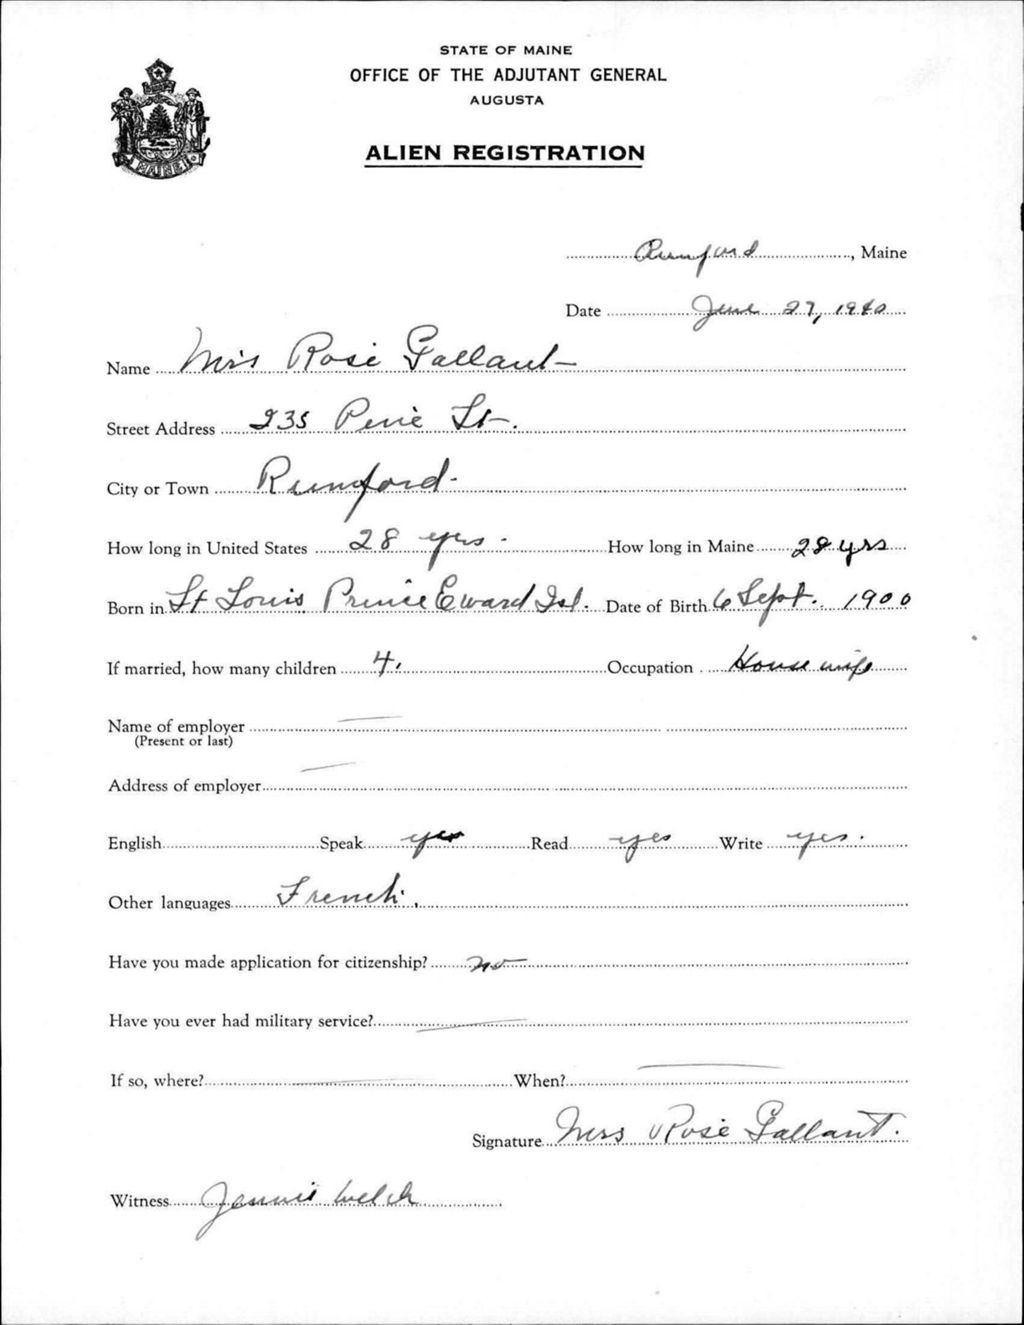 STATE OF MAINE
OFFICE OF THE ADJUTANT GENERAL
AUGUSTA
ALIEN REGISTRATION
MAINE
Rumford, Maine
Date June 27, 1940
Name Mrs Rose Gallant
Street Address 235 Pine St.
City or Town Rumford.
How long in United States 28 yrs. How long in Maine 28 yrs
Born in St Louis Prince Eward Isl. Date of Birth 6 Sept. 1900
If married, how many children 4. Occupation House wife
Name of employer —
(Present or last)
Address of employer —
English Speak yes Read yes Write yes.
Other languages French.
Have you made application for citizenship? no
Have you ever had military service? —
If so, where? — When? —
Signature Mrs Rose Gallant.
Witness Jennie Welch